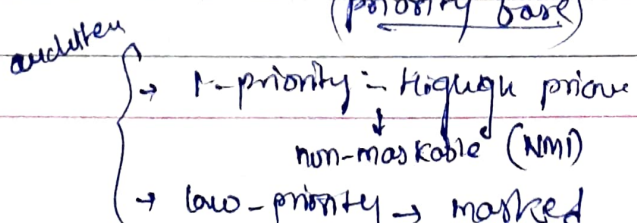 (priority base)
→ 1-priority :- Highegh priou
↓
non-maskable (NMI)
→ low-priority → masked